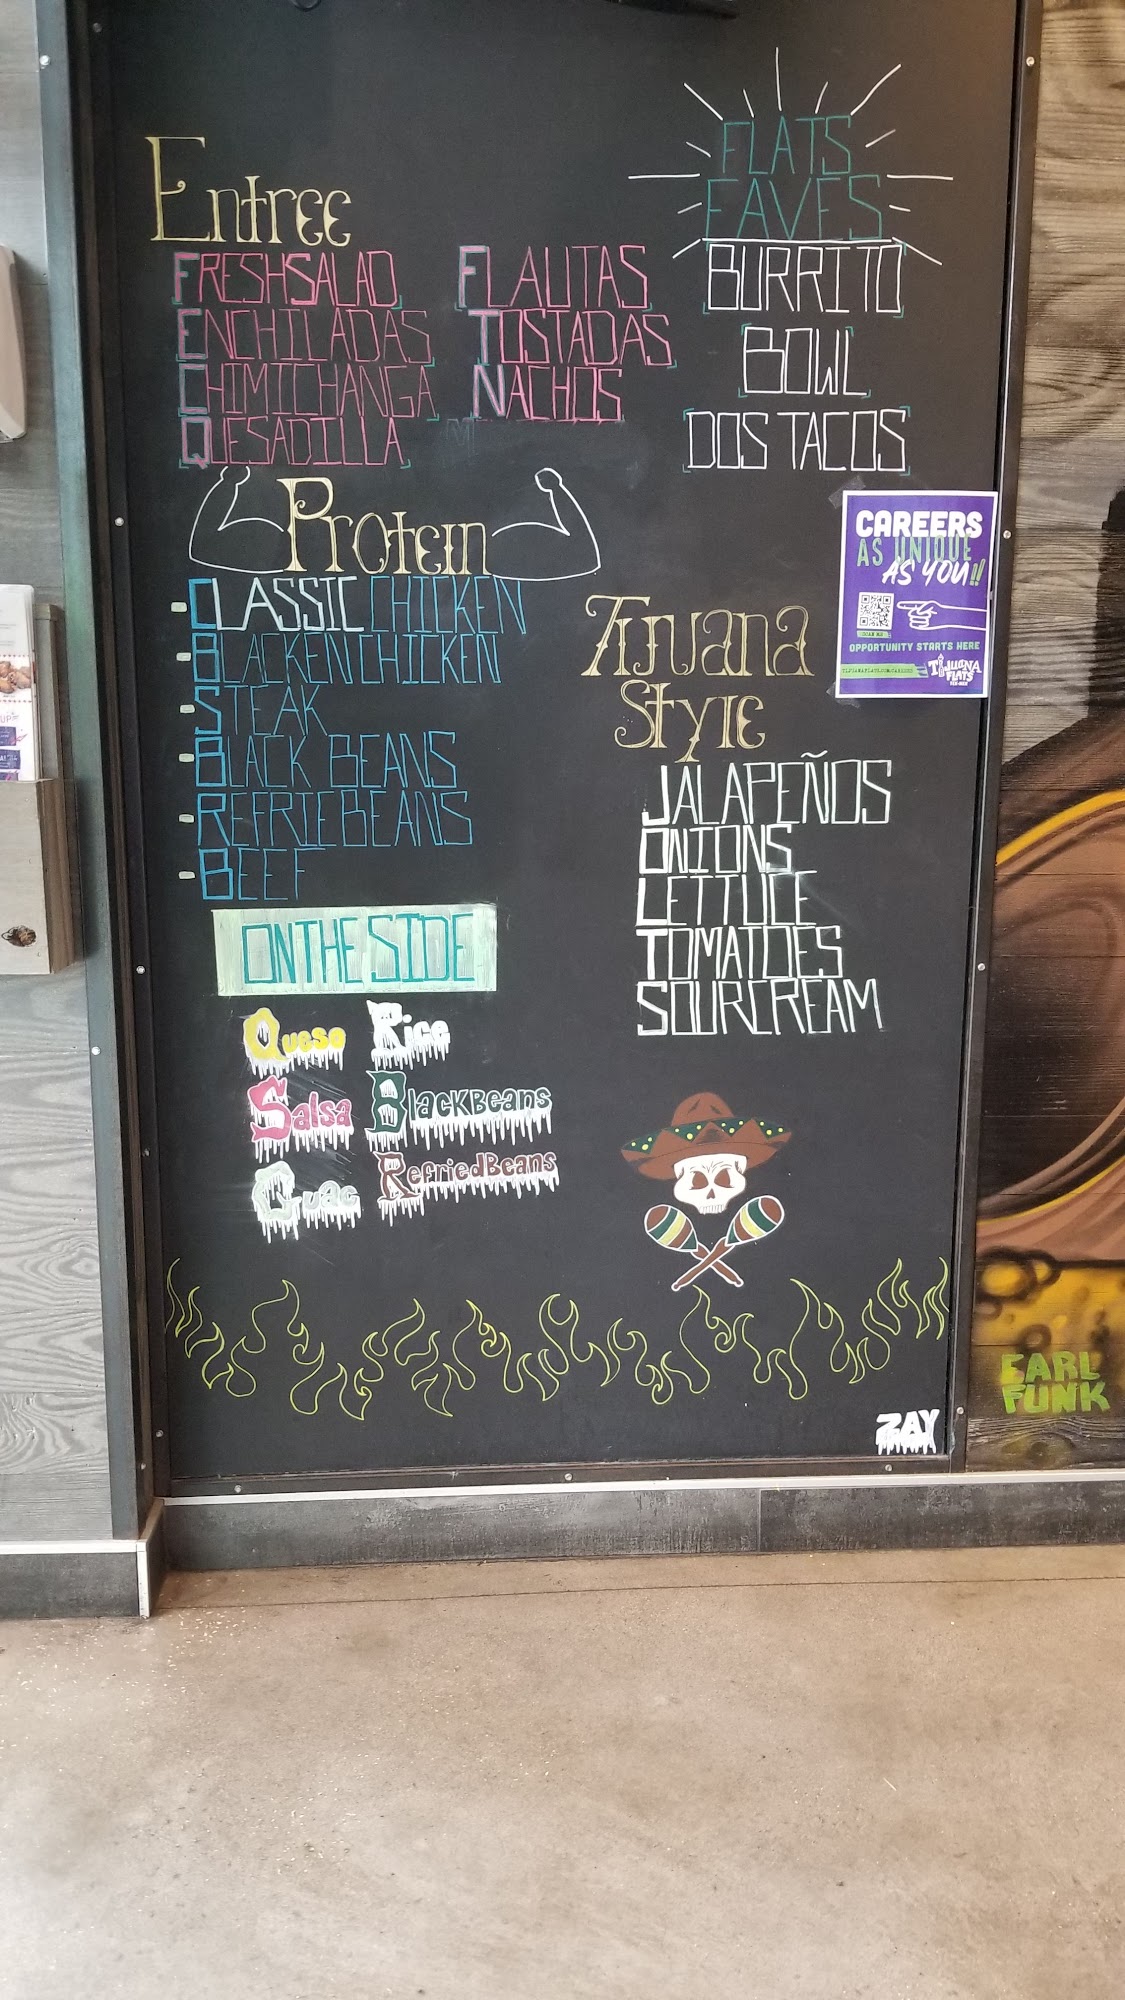 Entree
FRESH SALAD
ENCHILADAS
CHIMICHANGA
QUESADILLA
FLAUTAS
TOSTADAS
NACHOS
FLATS
FAVES
BURRITO
BOWL
DOS TACOS
Protein
CLASSIC CHICKEN
BLACKEN CHICKEN
STEAK
BLACK BEANS
REFRIEBEANS
BEEF
CAREERS
AS UNIQUE
AS YOU!!
SCAN ME
OPPORTUNITY STARTS HERE
TIJUANA
FLATS
TEX-MEX
Tijuana
Style
JALAPEÑOS
ONIONS
LETTUCE
TOMATOES
SOURCREAM
ON THE SIDE
Queso
Salsa
Guac
Rice
BlackBeans
RefriedBeans
ZAY
EARL
FUNK